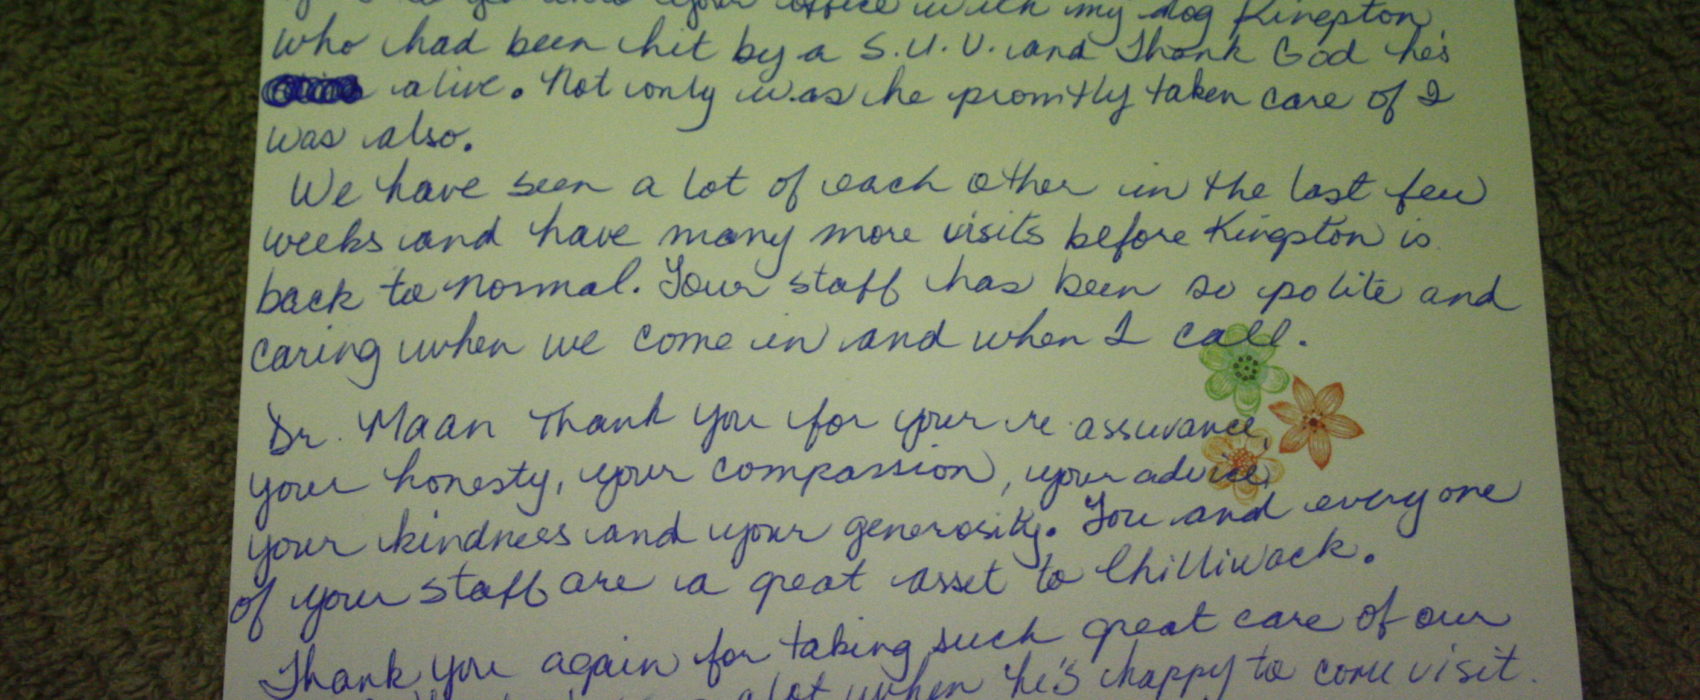 your office with my dog Kingston
who had been hit by a S.U.V. and Thank God he's
alive. Not only was he promtly taken care of I
was also.
We have seen a lot of each other in the last few
weeks and have many more visits before Kingston is
back to normal. Your staff has been so polite and
caring when we come in and when I call.
Dr. Maan Thank you for your re assurance,
your honesty, your compassion, your advice,
your kindness and your generosity. You and everyone
of your staff are a great asset to Chilliwack.
Thank you again for taking such great care of our
a lot when he's happy to come visit.